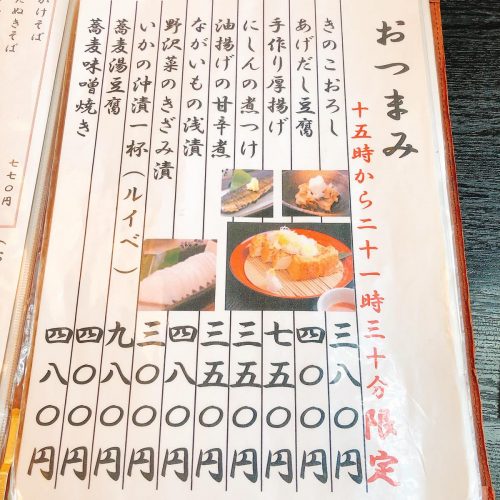 おつまみ
十五時から二十一時三十分限定
きのこおろし 三八〇円
あげだし豆腐 四〇〇円
手作り厚揚げ 七五〇円
にしんの煮つけ 三五〇円
油揚げの甘辛煮 三五〇円
ながいもの浅漬 四八〇円
野沢菜のきざみ漬 三〇〇円
いかの沖漬一杯(ルイベ) 九八〇円
蕎麦湯豆腐 四〇〇円
蕎麦味噌焼き 四八〇円
かけそば 七七〇円
たぬきそば